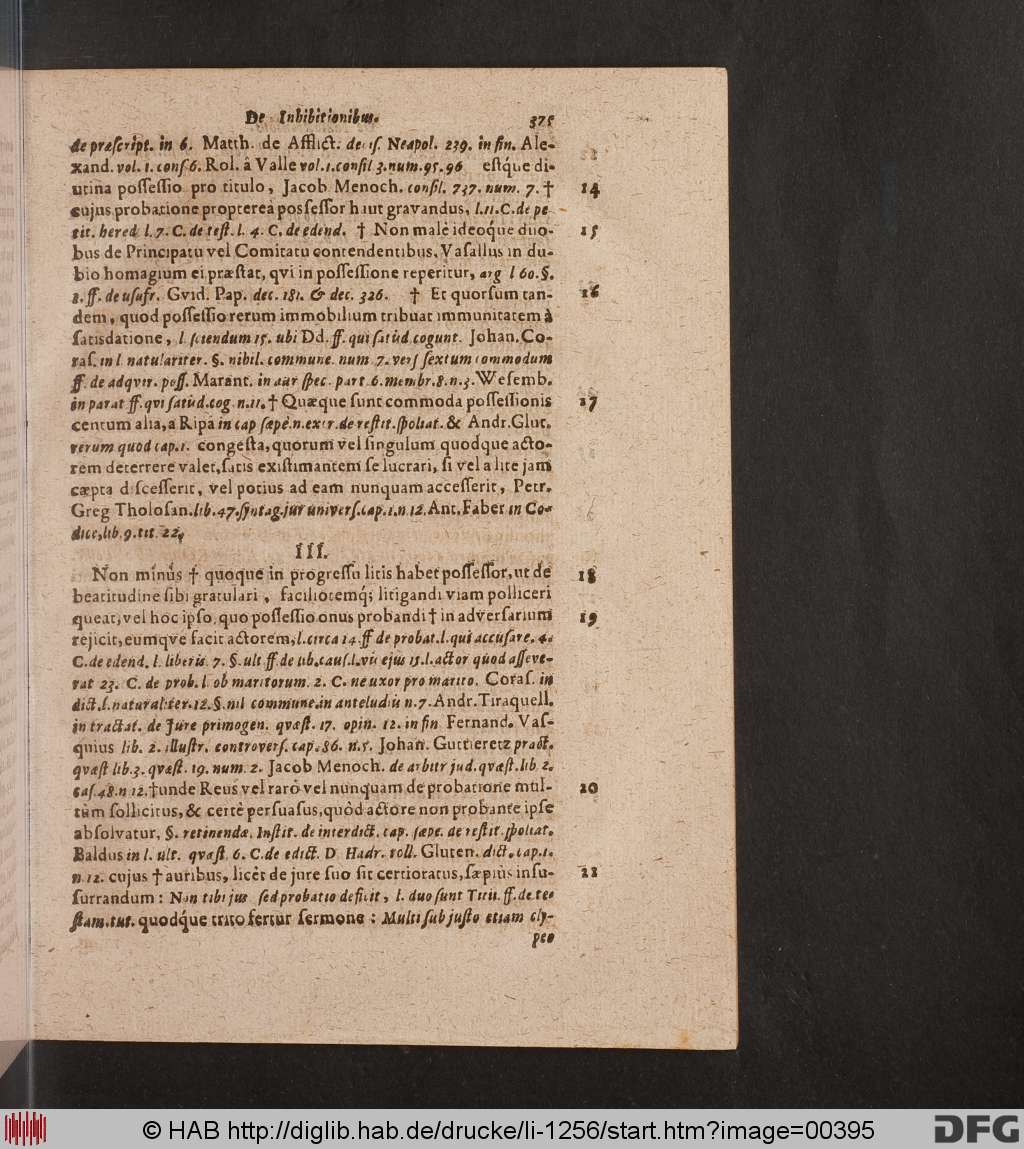 De Inhibitionibus. 375
de præscript. in 6. Matth. de Afflict. decis. Neapol. 239. in fin. Ale-
xand. vol. 1. cons 6. Rol. â Valle vol. 1. consil 3. num. 95. 96 estq́ue di-
utina possessio pro titulo, Jacob Menoch. consil. 737. num. 7. † 14
cujus probatione propterea possessor haut gravandus, l. 11. C. de pe
tit. hered l. 7. C. de test. l. 4. C. de edend. † Non malè ideoq́ue duo- 15
bus de Principatu vel Comitatu contendentibus, Vasallus in du-
bio homagium ei præstat, qvi in possessione reperitur, arg l 60. §.
8. ff. de usufr. Gvid. Pap. dec. 181. & dec. 326. † Et quorsum tan- 16
dem, quod possessio rerum immobilium tribuat immunitatem à
satisdatione, l. sciendum 15. ubi Dd. ff. qui satùd cogunt. Johan. Co-
ras. in l naturaliter. §. nihil. commune. num. 7. vers sextum commodum
ff. de adqvir. poss. Marant. in aur spec. part. 6. membr. 8. n. 3. Wesemb.
in parat ff. qvi satùd. cog. n. 11. † Quæque sunt commoda possessionis 17
centum alia, a Ripa in cap sæpè. n. extr. de restit. spoliat. & Andr. Glut.
rerum quod cap. 1. congesta, quorum vel singulum quodque acto-
rem deterrere valet, satis existimantem se lucrari, si vel a lite jam
cæpta discesserit, vel potius ad eam nunquam accesserit, Petr.
Greg Tholosan. lib. 47. syntag. jur univers. cap. 1. n. 12. Ant. Faber in Co-
dice, lib. 9. tit. 22.
III.
Non minùs † quoque in progressu litis habet possessor, ut de 18
beatitudine sibi gratulari, faciliotemq; litigandi viam polliceri
queat, vel hoc ipso, quo possessio onus probandi † in adversarium 19
rejicit, eumqve facit actorem, l. circa 14. ff de probat. l. qui accusare. 4.
C. de edend. l. liberis. 7. §. ult ff. de lib. caus. l. vis ejus 15. l. actor quod asseve-
rat 23. C. de prob. l ob maritorum. 2. C. ne uxor pro marito. Coras. in
dict. l. naturaliter. 12. §. nil commune. in anteludiis n. 7. Andr. Tiraquell.
in tractat. de Jure primogen. qvæst. 17. opin. 12. in fin Fernand. Vas-
quius lib. 2. illustr. controvers. cap. 86. n. 5. Johan. Guttieretz pract.
qvæst lib. 3. qvæst. 19. num. 2. Jacob Menoch. de arbitr jud. qvæst. lib 2.
cas. 48. n 12. † unde Reus vel rarò vel nunquam de probatione mul- 20
tùm sollicitus, & certè persuasus, quòd actore non probante ipse
absolvatur, §. retinendæ. Instit. de interdict. cap. sæpe. de restit. spoliat.
Baldus in l. ult. qvæst. 6. C. de edict. D Hadr. toll. Gluten. dict. cap. 1.
n. 12. cujus † auribus, licèt de jure suo sit certioratus, sæpiùs insu- 21
surrandum: Non tibi jus sed probatio deficit, l. duo sunt Titii. ff. de te-
stam. tut. quodq́ue trito fertur sermone: Multi sub justo etiam cly-
peo
© HAB http://diglib.hab.de/drucke/li-1256/start.htm?image=00395
DFG